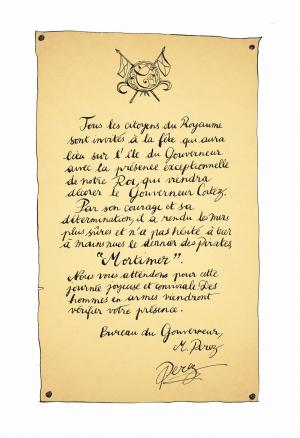 Tous les citoyens du Royaume
sont invités à la fête qui aura
lieu sur l'île du Gouverneur
avec la présence exceptionnelle
de notre Roi, qui viendra
décorer le Gouverneur Cortez.
Par son courage et sa
détermination, il a rendu les mers
plus sûres et n'a pas hésité à tuer
à mains nues le dernier des Pirates
"Mortimer".
Nous vous attendons pour cette
journée joyeuse et conviviale. Des
hommes en armes viendront
vérifier votre présence.
Bureau du Gouverneur,
M. Perez
Perez